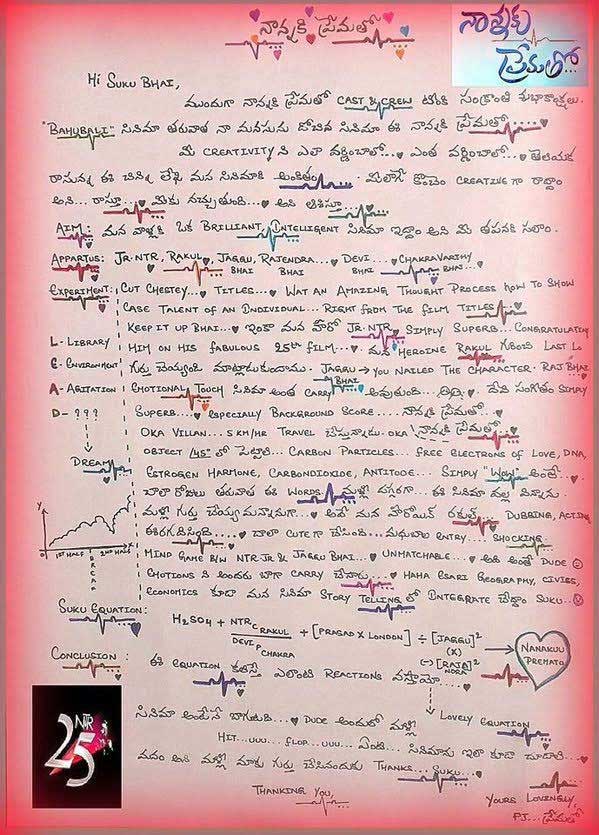 నాన్నకి ప్రేమతో
నాన్నకు
ప్రేమతో...
Hi SUKU BHAI,
ముందుగా నాన్నకి ప్రేమతో CAST & CREW టీంకి సంక్రాంతి శుభాకాంక్షలు.
"BAHUBALI" సినిమా తరువాత నా మనసును దోచిన సినిమా ఈ నాన్నకి ప్రేమతో...
మీ CREATIVITY ని ఎలా వర్ణించాలో... ఎంత వర్ణించాలో... తెలియక
రాసున్న ఈ చిన్ని లేఖ మన సినిమాకి అంకితం. మీలాగే కొంచెం CREATIVE గా రాద్దాం
అని... రాస్తూ... మీకు నచ్చుతుంది... అని ఆశిస్తూ...
AIM: మన వాళ్ళకి ఒక BRILLIANT, INTELLIGENT సినిమా ఇద్దాం అని మీ తపనకి సలాం.
APPARTUS: JR.NTR, RAKUL, JAGGU, RAJENDRA... DEVI... CHAKRAVARTHY
BHAI BHAI BHAI BHAI...
EXPERIMENT: CUT CHESTEY... TITLES... WAT AN AMAZING THOUGHT PROCESS HOW TO SHOW
CASE TALENT OF AN INDIVIDUAL... RIGHT FROM THE FILM TITLES...
KEEP IT UP BHAI... ఇంకా మన హీరో JR.NTR, SIMPLY SUPERB... CONGRATULATING
L - LIBRARY HIM ON HIS FABULOUS 25th FILM... మన HEROINE RAKUL LAST లో
E - ENVIRONMENT గుర్తు చెయ్యండి మాట్లాడుకుందాము. JAGGU → YOU NAILED THE CHARACTER. RAJ BHAI
BHAI
A - AGITATION EMOTIONAL TOUCH సినిమా అంత CARRY అవుతుంది... దేవి సంగీతం SIMPLY
D - ??? SUPERB... ESPECIALLY BACKGROUND SCORE... నాన్నకు ప్రేమతో...
OKA VILLAN... 5 KM/HR TRAVEL చేస్తున్నాడు. OKA నాన్నకి ప్రేమతో...
DREAM OBJECT 45° లో పెట్టాలి. CARBON PARTICLES... FREE ELECTRONS OF LOVE, DNA,
ESTROGEN HARMONE, CARBONDIOXIDE, ANTITODE... SIMPLY "WOW" అంతే.
చాలా రోజులు తరువాత ఈ WORDS మళ్ళీ దగ్గరగా... ఈ సినిమా వల్ల విన్నాను.
Y మళ్ళీ గుర్తు చేయ్యమన్నానుగా... అదే మన హీరోయిన్ రకుల్ DUBBING, ACTING
ఈరగదీసింది... చాలా CUTE గా చేసింది... మధుబాల ENTRY... SHOCKING.
1ST HALF BREAK 2ND HALF X MIND GAME B/W NTR JR & JAGGU BHAI... UNMATCHABLE... అది అంతే DUDE
EMOTIONS ని అందరు బాగా CARRY చేసారు... HAHA ESARI GEOGRAPHY, CIVICS,
ECONOMICS కూడా మన సినిమా STORY TELLING లో INTEGRATE చేద్దాం SUKU..
SUKU EQUATION: H2SO4 + NTR C RAKUL / DEVI P CHAKRA + [PRASAD X LONDON] ÷ [JAGGU]² (X) (-) [RAJENDRA]² → NANAKUU PREMATO
CONCLUSION: ఈ EQUATION కలిస్తే ఎలాంటి REACTIONS వస్తాయో...
సినిమా అంటేనే బాగుంటది... DUDE అందులో మళ్ళీ LOVELY EQUATION
HIT...UUU... FLOP...UUU... ఏంటి... సినిమాను ఇలా కూడా చూడాలి...
NTR
25
మనం అని మళ్ళీ మాకు గుర్తు చేసినందుకు THANKS... SUKU...
THANKING YOU,
YOURS LOVINGLY,
PJ... ప్రేమతో